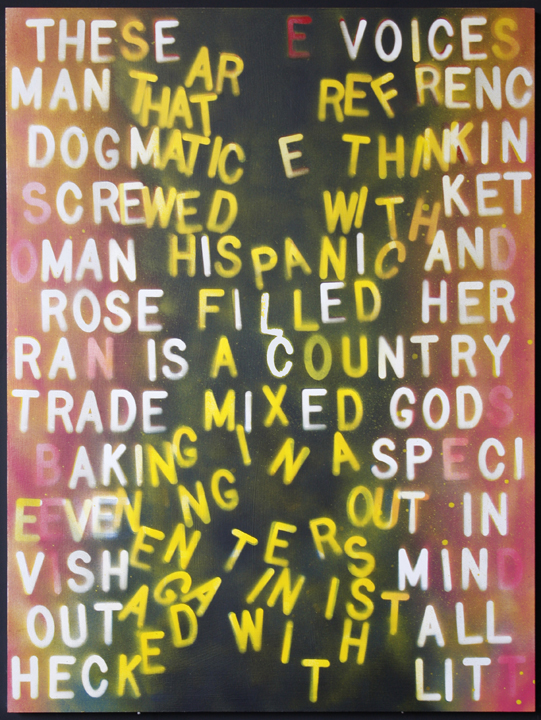 THESE E VOICES
MAN THAT AR REF RENC
DOGMATIC E THINKIN
SCREWED WITH KET
OMAN HISPANIC AND
ROSE FILLED HER
RAN IS A COUNTRY
TRADE MIXED GODS
BAKING IN A SPECI
EVEN NG OUT IN
VISH EN TERS MIND
OUT AGA IN IST ALL
HECKED WITH LITT